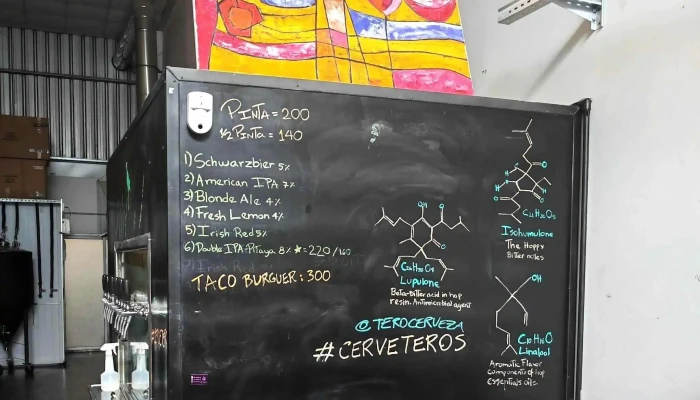 PINTA = 200
½ PINTA = 140
1) Schwarzbier 5%
2) American IPA 7%
3) Blonde Ale 4%
4) Fresh Lemon 4%
5) Irish Red 5%
6) Double IPA-Pitaya 8% ★=220/160
7) Irish R
TACO BURGUER: 300
OH
O
O
C26H38O4
Lupulone
Beta-bitter acid in hop
resin. Antimicrobial agent
@TEROCERVEZA
#CERVETEROS
O
O
Isohumulone
The Hoppy
Bitter notes
OH
C10H18O
Linalool
Aromatic Flavor
components of hop
essentials oils.